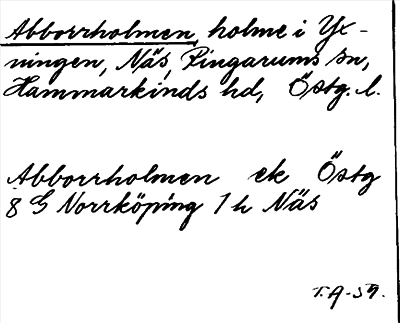 Abborrholmen, holme i Yx-
ningen, Näs, Ringarums sn,
Hammarkinds hd, Östg. l.
Abborrholmen ek Östg
8 G Norrköping 1 h Näs
T. A-59.